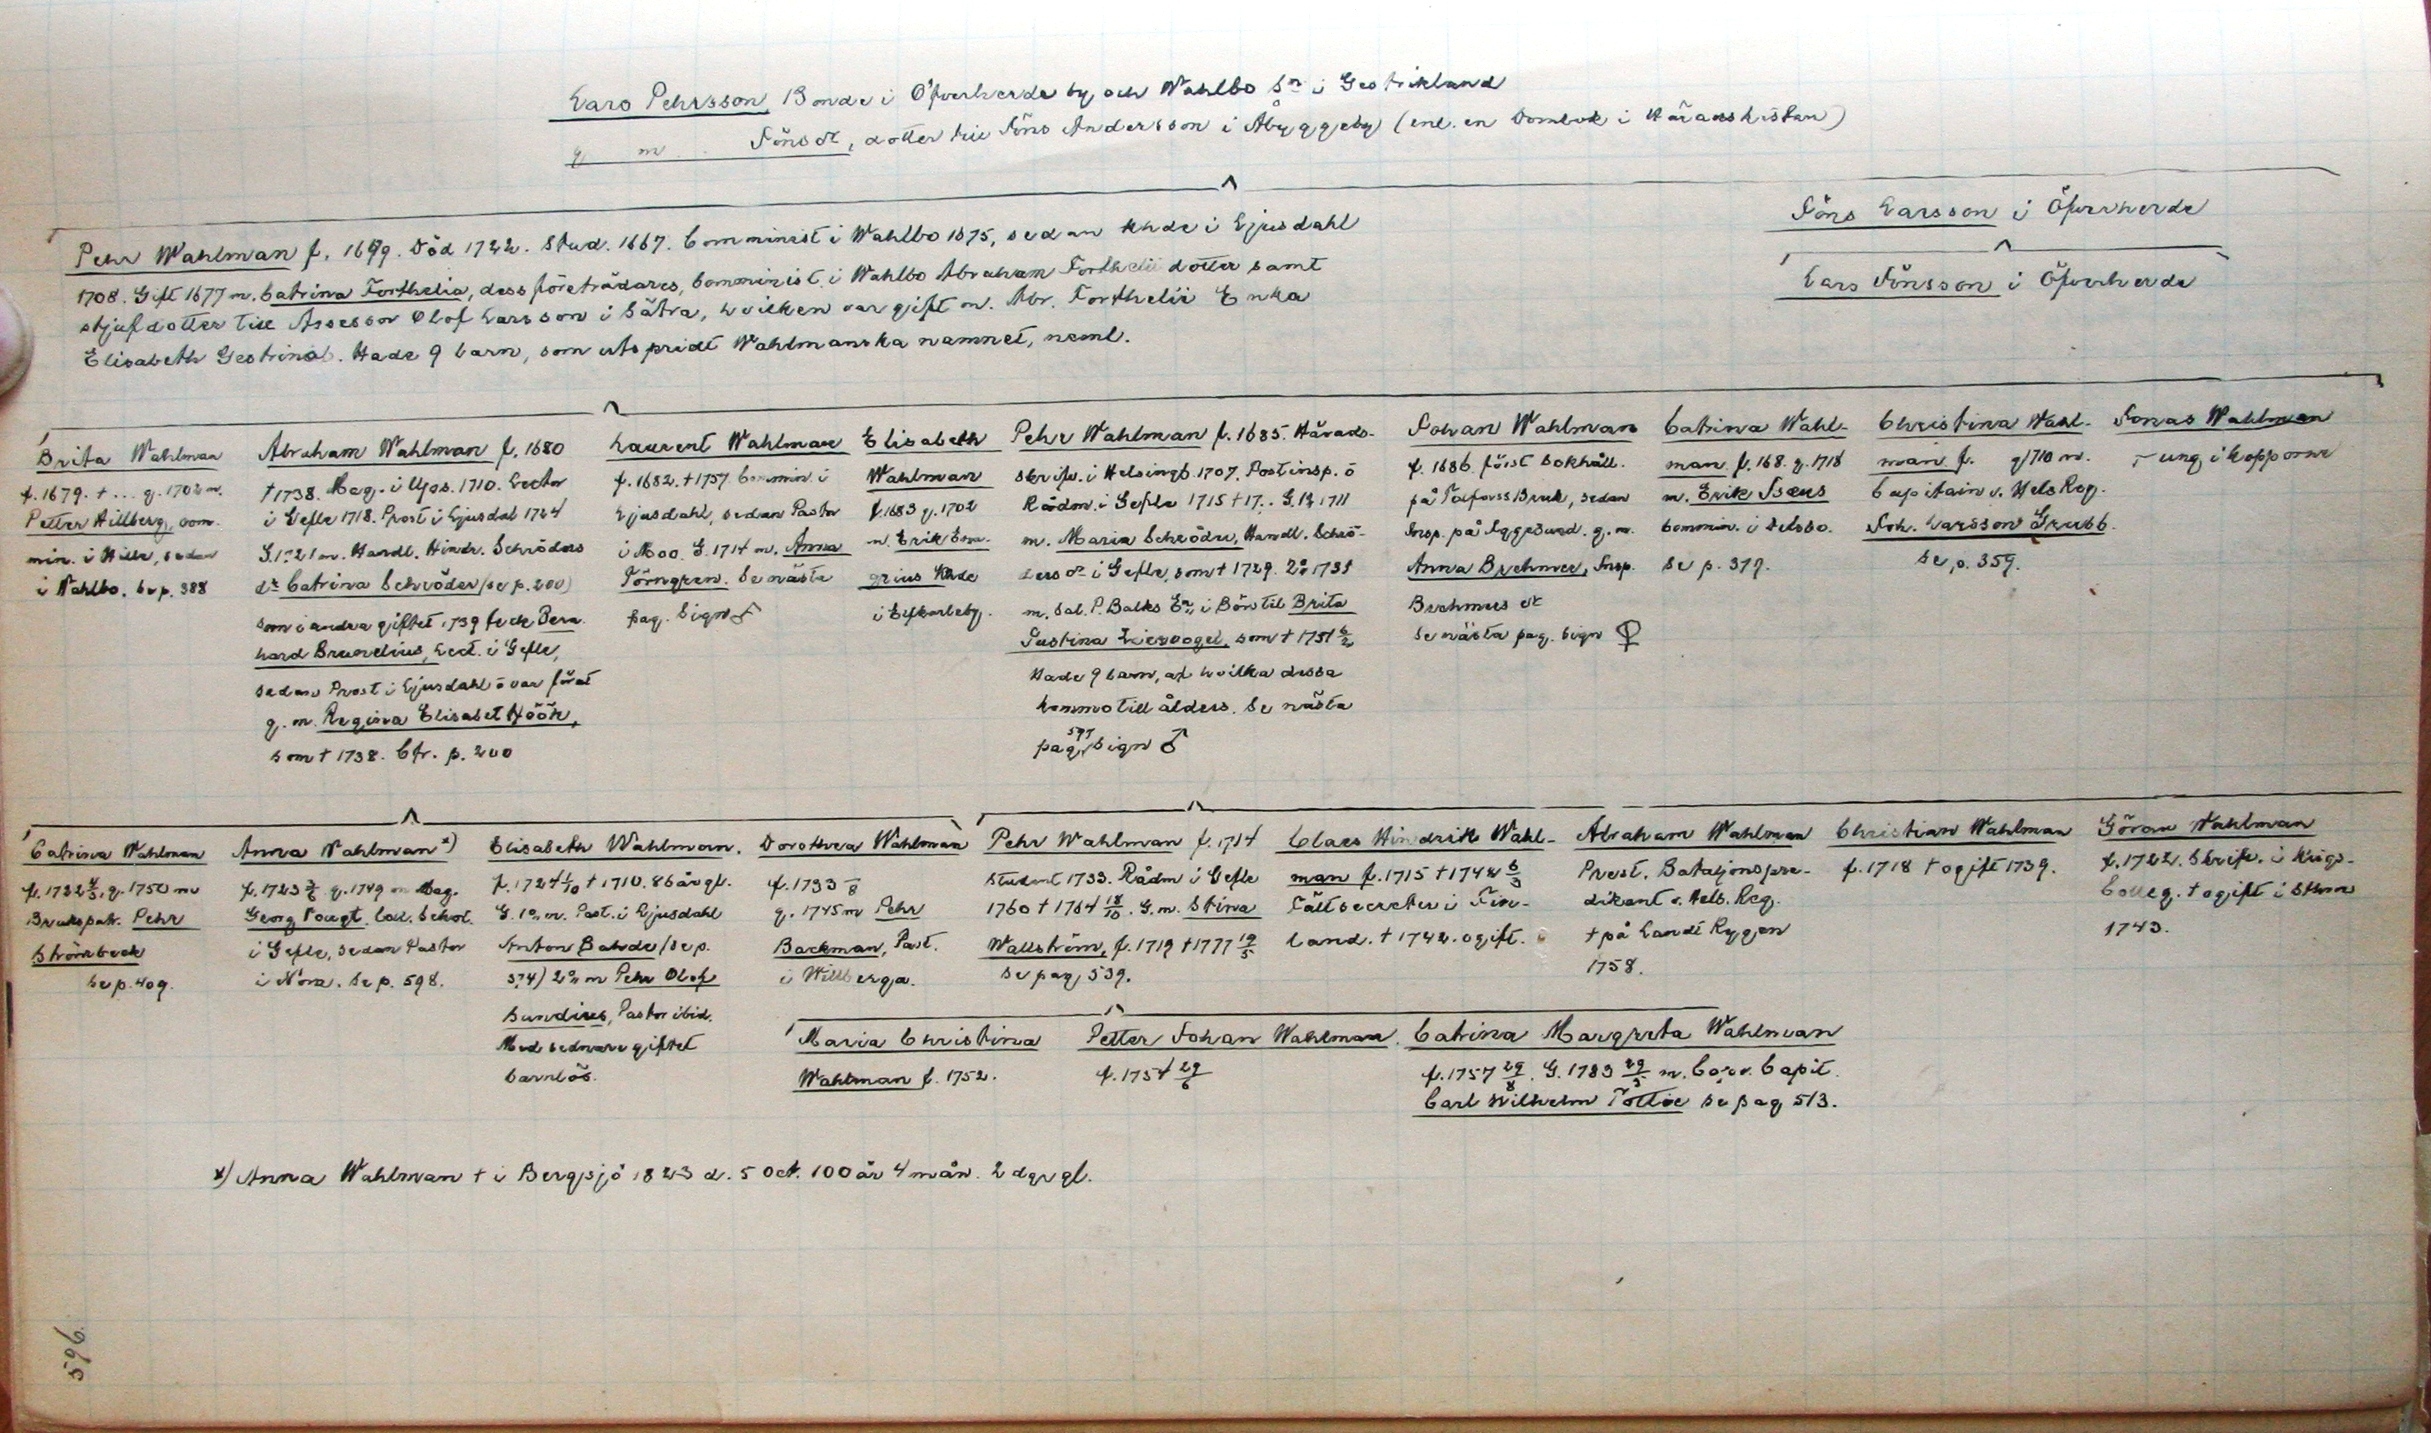 Lars Pehrsson, Bonde i Öfverherde by och Wahlbo Sn i Gestrikland
g m Jönsdr, dotter till Jöns Andersson i Åbyggeby (enl. en Dombok i Häradskistan)
Pehr Wahlman f. 1649. Död 1722. Stud. 1667. Comminist i Wahlbo 1675, sedan Khde i Ljusdahl
1708. Gift 1677 m. Catrina Forthelia, dess företrädares, Comminist. i Wahlbo Abraham Forthelii dotter samt
stjufdotter till Assessor Olof Larsson i Sätra, hvilken var gift m. Abr. Forthelii Enka
Elisabeth Gestrinia. Hade 9 barn, som utspridt Wahlmanska namnet, neml.
Jöns Larsson i Öfverherde
Lars Jönsson i Öfverherde
Brita Wahlman
f. 1679. † ... g. 1702 m.
Petter Hillberg, com-
min. i Hille, sedan
i Wahlbo. Se p. 388
Abraham Wahlman f. 1680
† 1738. Mag. i Ups. 1710. Lector
i Gefle 1718. Prost i Ljusdal 1724
G. 1721 m. Handl. Hindr. Schröders
dr Catrina Schröder (se p. 200)
som i andra giftet 1739 fick Bern-
hard Brunelius, Lect. i Gefle,
sedan Prost i Ljusdahl o var förut
g. m. Regina Elisabet Höök,
som † 1738. Cfr. p. 200
Laurent Wahlman
f. 1682. † 1757. Commin. i
Ljusdahl, sedan Pastor
i Moo. G. 1714 m. Anna
Törngren. Se nästa
pag. Sign ♂
Elisabeth
Wahlman
f. 1683 g. 1702
m. Erik Ema-
grius Khde
i Elfkarleby.
Pehr Wahlman f. 1685. Härads-
skrifv. i Helsingl. 1707. Postinsp. o
Rådm. i Gefle 1715 † 17.. G. 1o 1711
m. Maria Schröder, Handl. Schrö-
ders dr i Gefle, som † 1729. 2o 1731
m. Sal. P. Balks Ea i Börstil Brita
Justina Ziervogel, som † 1751 6/2
Hade 9 barn, af hvilka dessa
kommo till ålders. Se nästa
pag. 597 Sign ♂
Johan Wahlman
f. 1686. först bokhåll.
på Tolfors Bruk, sedan
Insp. på Iggesund. g. m.
Anna Brehmer, Insp.
Brehmers dr
Se nästa pag. Sign ♀
Catrina Wahl-
man f. 168. g. 1718
m. Erik Isæus
Commin. i Delsbo.
Se p. 379.
Christina Wahl-
man f. g 1710 m.
Capitain v. Hels Reg.
Joh. Larsson Grubb.
se p. 359.
Jonas Wahlman
† ung i kopporne
Catrina Wahlman
f. 1722 4/3. g. 1750 m
Brukspatr. Pehr
Strömbeck
Se p. 409.
Anna Wahlman x)
f. 1723 3/6 g. 1749 m Mag.
Georg Vougt. Coll. Schol.
i Gefle, sedan Pastor
i Nora. Se p. 598.
Elisabeth Wahlman.
f. 1724 1/10 † 1710. 86 år gl.
G. 1o m. Past. i Ljusdahl
Anton Bahde (se p.
374) 2o m Pehr Olof
Sundius, Pastor ibid.
Med sednare giftet
barnlös.
Dorothea Wahlman
f. 1733 /8
g. 1745 m Pehr
Backman, Past.
i Willberga.
Pehr Wahlman f. 1714
student 1733. Rådm i Gefle
1760 † 1764 18/10. G. m. Stina
Wallström, f. 1719 † 1777 19/5
se pag 539.
Claes Hindrik Wahl-
man f. 1715 † 1742 6/3
Fältsecreter i Fin-
land. † 1742. ogift.
Abraham Wahlman
Prest. Bataljonspre-
dikant v. Hels. Reg.
† på Landt Rygen
1758.
Christian Wahlman
f. 1718 † ogift 1739.
Göran Wahlman
f. 1722. Skrifv. i Krigs-
Colleg. † ogift i Sthm
1743.
Maria Christina
Wahlman f. 1752.
Petter Johan Wahlman.
f. 1754 29/6
Catrina Margreta Wahlman
f. 1757 29/8. G. 1783 29/5 m. Capit.
Carl Wilhelm Tottie se pag 513.
x) Anna Wahlman † i Bergsjö 1823 d. 5 Oct. 100 år 4 mån. 2 dgr gl.
596